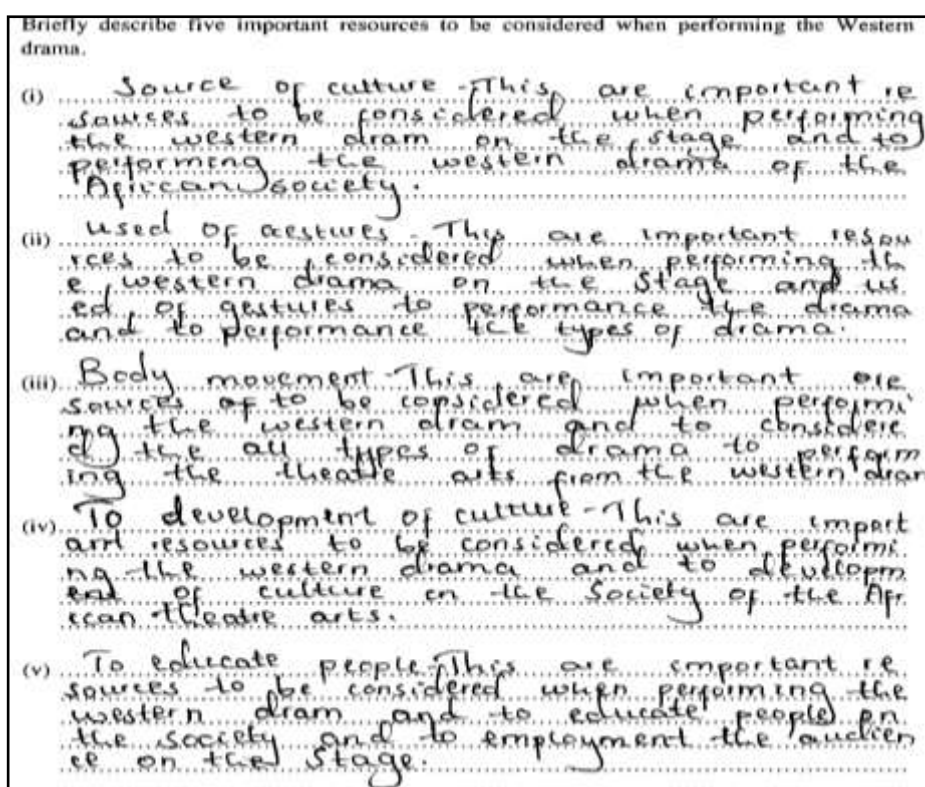 Briefly describe five important resources to be considered when performing the Western
drama.
(i) Source of culture - This are important re
sources to be considered when performing
the western dram on the stage and to
performing the western drama of the
African society.
(ii) used of gestures - This are important resou
rces to be considered when performing th
e western drama on the stage and us
ed of gestures to performance the drama
and to performance the types of drama.
(iii) Body movement - This are important ore
sources of to be considered when performi
ng the western dram and to considere
d the all types of drama to perform
ing the theatre arts from the western dram
(iv) To development of culture - This are import
ant resources to be considered when performi
ng the western drama and to developm
ent of culture in the society of the Afr
ican theatre arts.
(v) To educate people - This are important re
sources to be considered when performing the
western dram and to educate people on
the society and to employment the audien
ce on the stage.